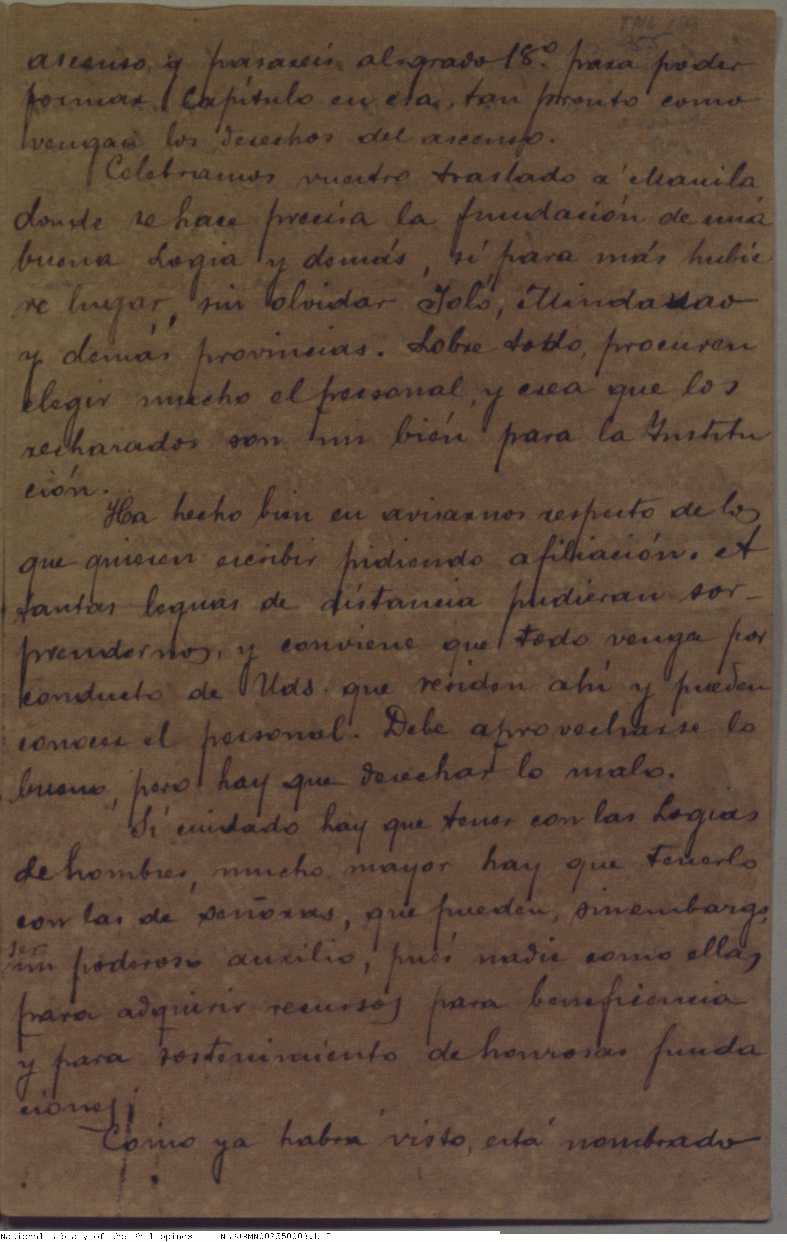 ascenso, y pasareis al grado 18.º para poder
formar Capítulo en esa, tan pronto como
vengan los derechos del ascenso.
Celebramos vuestro traslado a Manila
donde se hace precisa la fundación de una
buena Logia y demás, si para más hubie
re lugar, sin olvidar Joló, Mindanao
y demás provincias. Sobre todo, procuren
elegir mucho el personal, y crea que los
rechazados son un bién para la Institu
ción.
Ha hecho bien en avisarnos respecto de los
que quieren escribir pidiendo afiliación. A
tantas leguas de distancia pudieran sor-
prendernos, y conviene que todo venga por
conducto de Uds. que residen ahí y pueden
conocer el personal. Debe aprovecharse lo
bueno, pero hay que desechar lo malo.
Si cuidado hay que tener con las Logias
de hombres, mucho mayor hay que tenerlo
con las de señoras, que pueden, sinembargo,
ser
un poderoso auxilio, pues nadie como ellas
para adquirir recursos para beneficencia
y para sostenimiento de honrosas funda
ciones;
Como ya habrá visto, está nombrado
National Library of the Philippines